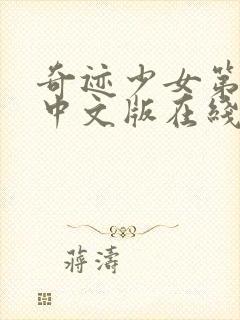 奇迹少女第
中文版在线
蒋涛